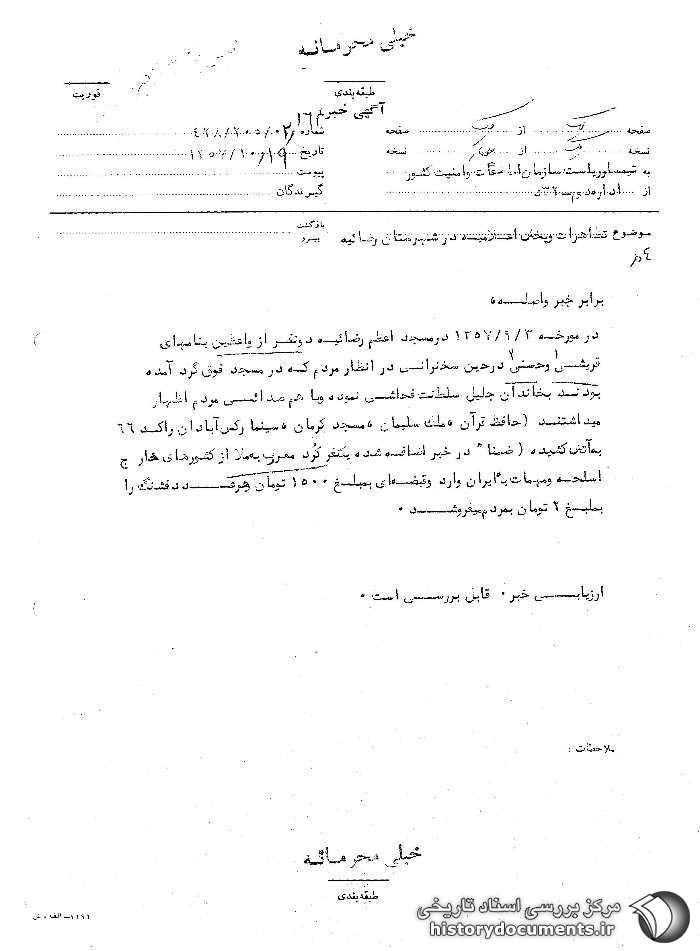 خیلی محرمانه
طبقه‌بندی
فوریت
آگهی خبر
صفحه از صفحه
شماره
نسخه از نسخه
تاریخ
به تیمسار ریاست سازمان اطلاعات و امنیت کشور
پیوست
از اداره دوم
گیرندگان
بازگشت
پیرو
موضوع تظاهرات و پخش اعلامیه در شهرستان رضائیه
برابر خبر واصله ه
در مورخه ۱۳۵۷/۹/۳ در مسجد اعظم رضائیه دونفر از واعظین بنامهای
قریشی و حسنی در حین سخنرانی در انظار مردم که در مسجد فوق گرد آمده
بودند بخاندان جلیل سلطنت فحاشی نموده و با هم صدائی مردم اظهار
میداشتند (حافظ قرآن ه ملک سلیمان ه مسجد کرمان ه سینما رکس آبادان را که ۶۶
به آتش کشیده (ضمنا" در خبر اضافه شده یکنفر کرد معرب بملا از کشورهای خارج
اسلحه ومهمات به ایران وارد وقبضه‌ای بمبلغ ۱۵۰۰ تومان و هر عدد فشنگ را
بمبلغ ۲ تومان بمردم میفروشد ۰
ارزیابی خبر ۰ قابل بررسی است ۰
ملاحظات :
خیلی محرمانه
طبقه‌بندی
مرکز بررسی اسناد تاریخی
historydocuments.ir